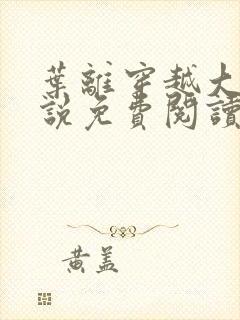 葉離穿越大
說免費閱讀
黃蓋